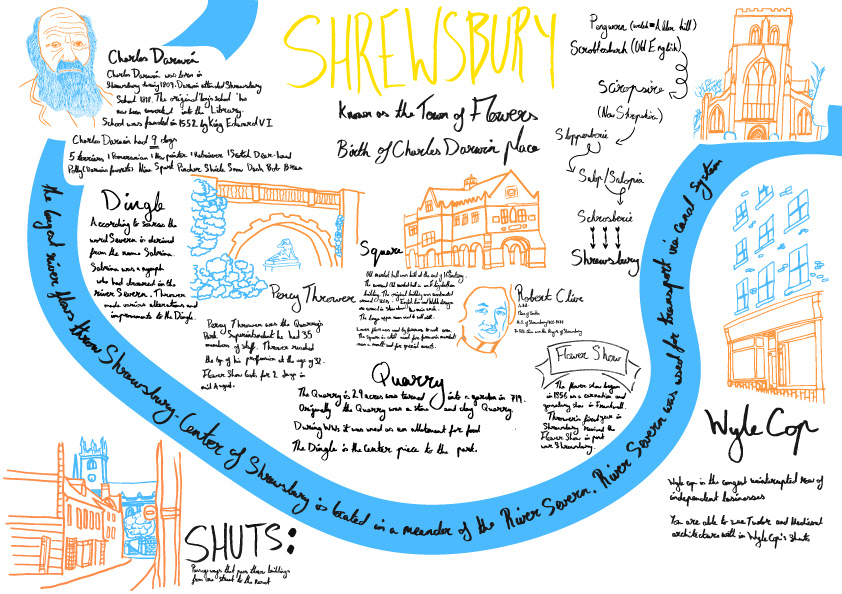 SHREWSBURY
Known as the Town of Flowers
Birth of Charles Darwin place
Charles Darwin
Charles Darwin was born in
Shrewsbury during 1809. Darwin attended Shrewsbury
School 1818. The original boys school has
now been converted into the Library.
School was founded in 1552 by King Edward VI
Charles Darwin had 9 dogs
5 terriers 1 Pomeranian 1 pointer 1 Retriever 1 Scotch Deer-hound
Polly (Darwin favourite) Nina Spark Pincher Shiela Snow Dash Bob Bran
Pengwern (welsh = Alder hill)
Scrobbesburh (Old English)
Saropsire
(Now Shropshire)
Sloppesberie
Salop/Salopia
Schrosberie
Shrewsbury
Dingle
According to sources the
word Severn is derived
from the name Sabrina.
Sabrina was a nymph
who had drowned in the
river Severn. Thrower
made various alterations and
improvements to the Dingle.
Percy Thrower
Percy Thrower was the Quarry's
Park Superintendent he had 35
members of staff. Thrower reached
the top of his profession at the age of 32.
Flower Show lasts for 2 days in
mid August.
Square
Old market hall was built at the end of 16 century.
The square is still used for
Robert Clive
M.P. of Shrewsbury
Flower Show
The flower show began
in 1836 as a carnation and
gooseberry show in Frankwell.
Thrower's first year in
Shrewsbury revived the
Flower Show in post
war Shrewsbury.
Quarry
The Quarry is 29 acres was turned into a garden in 719.
Originally the Quarry was a stone and clay Quarry.
During WW2 it was used as an allotment for food
The Dingle is the center piece to the park.
the longest river flows threw Shrewsbury. Center of Shrewsbury is located in a meander of the River Severn. River Severn was used for transport via canal system
Wyle Cop
Wyle cop is the longest uninterrupted row of
independent businesses
You are able to see Tudor and Medieval
architecture with in Wyle Cop's Shuts
SHUTS:
Passage ways that pass threw buildings
from one street to the next